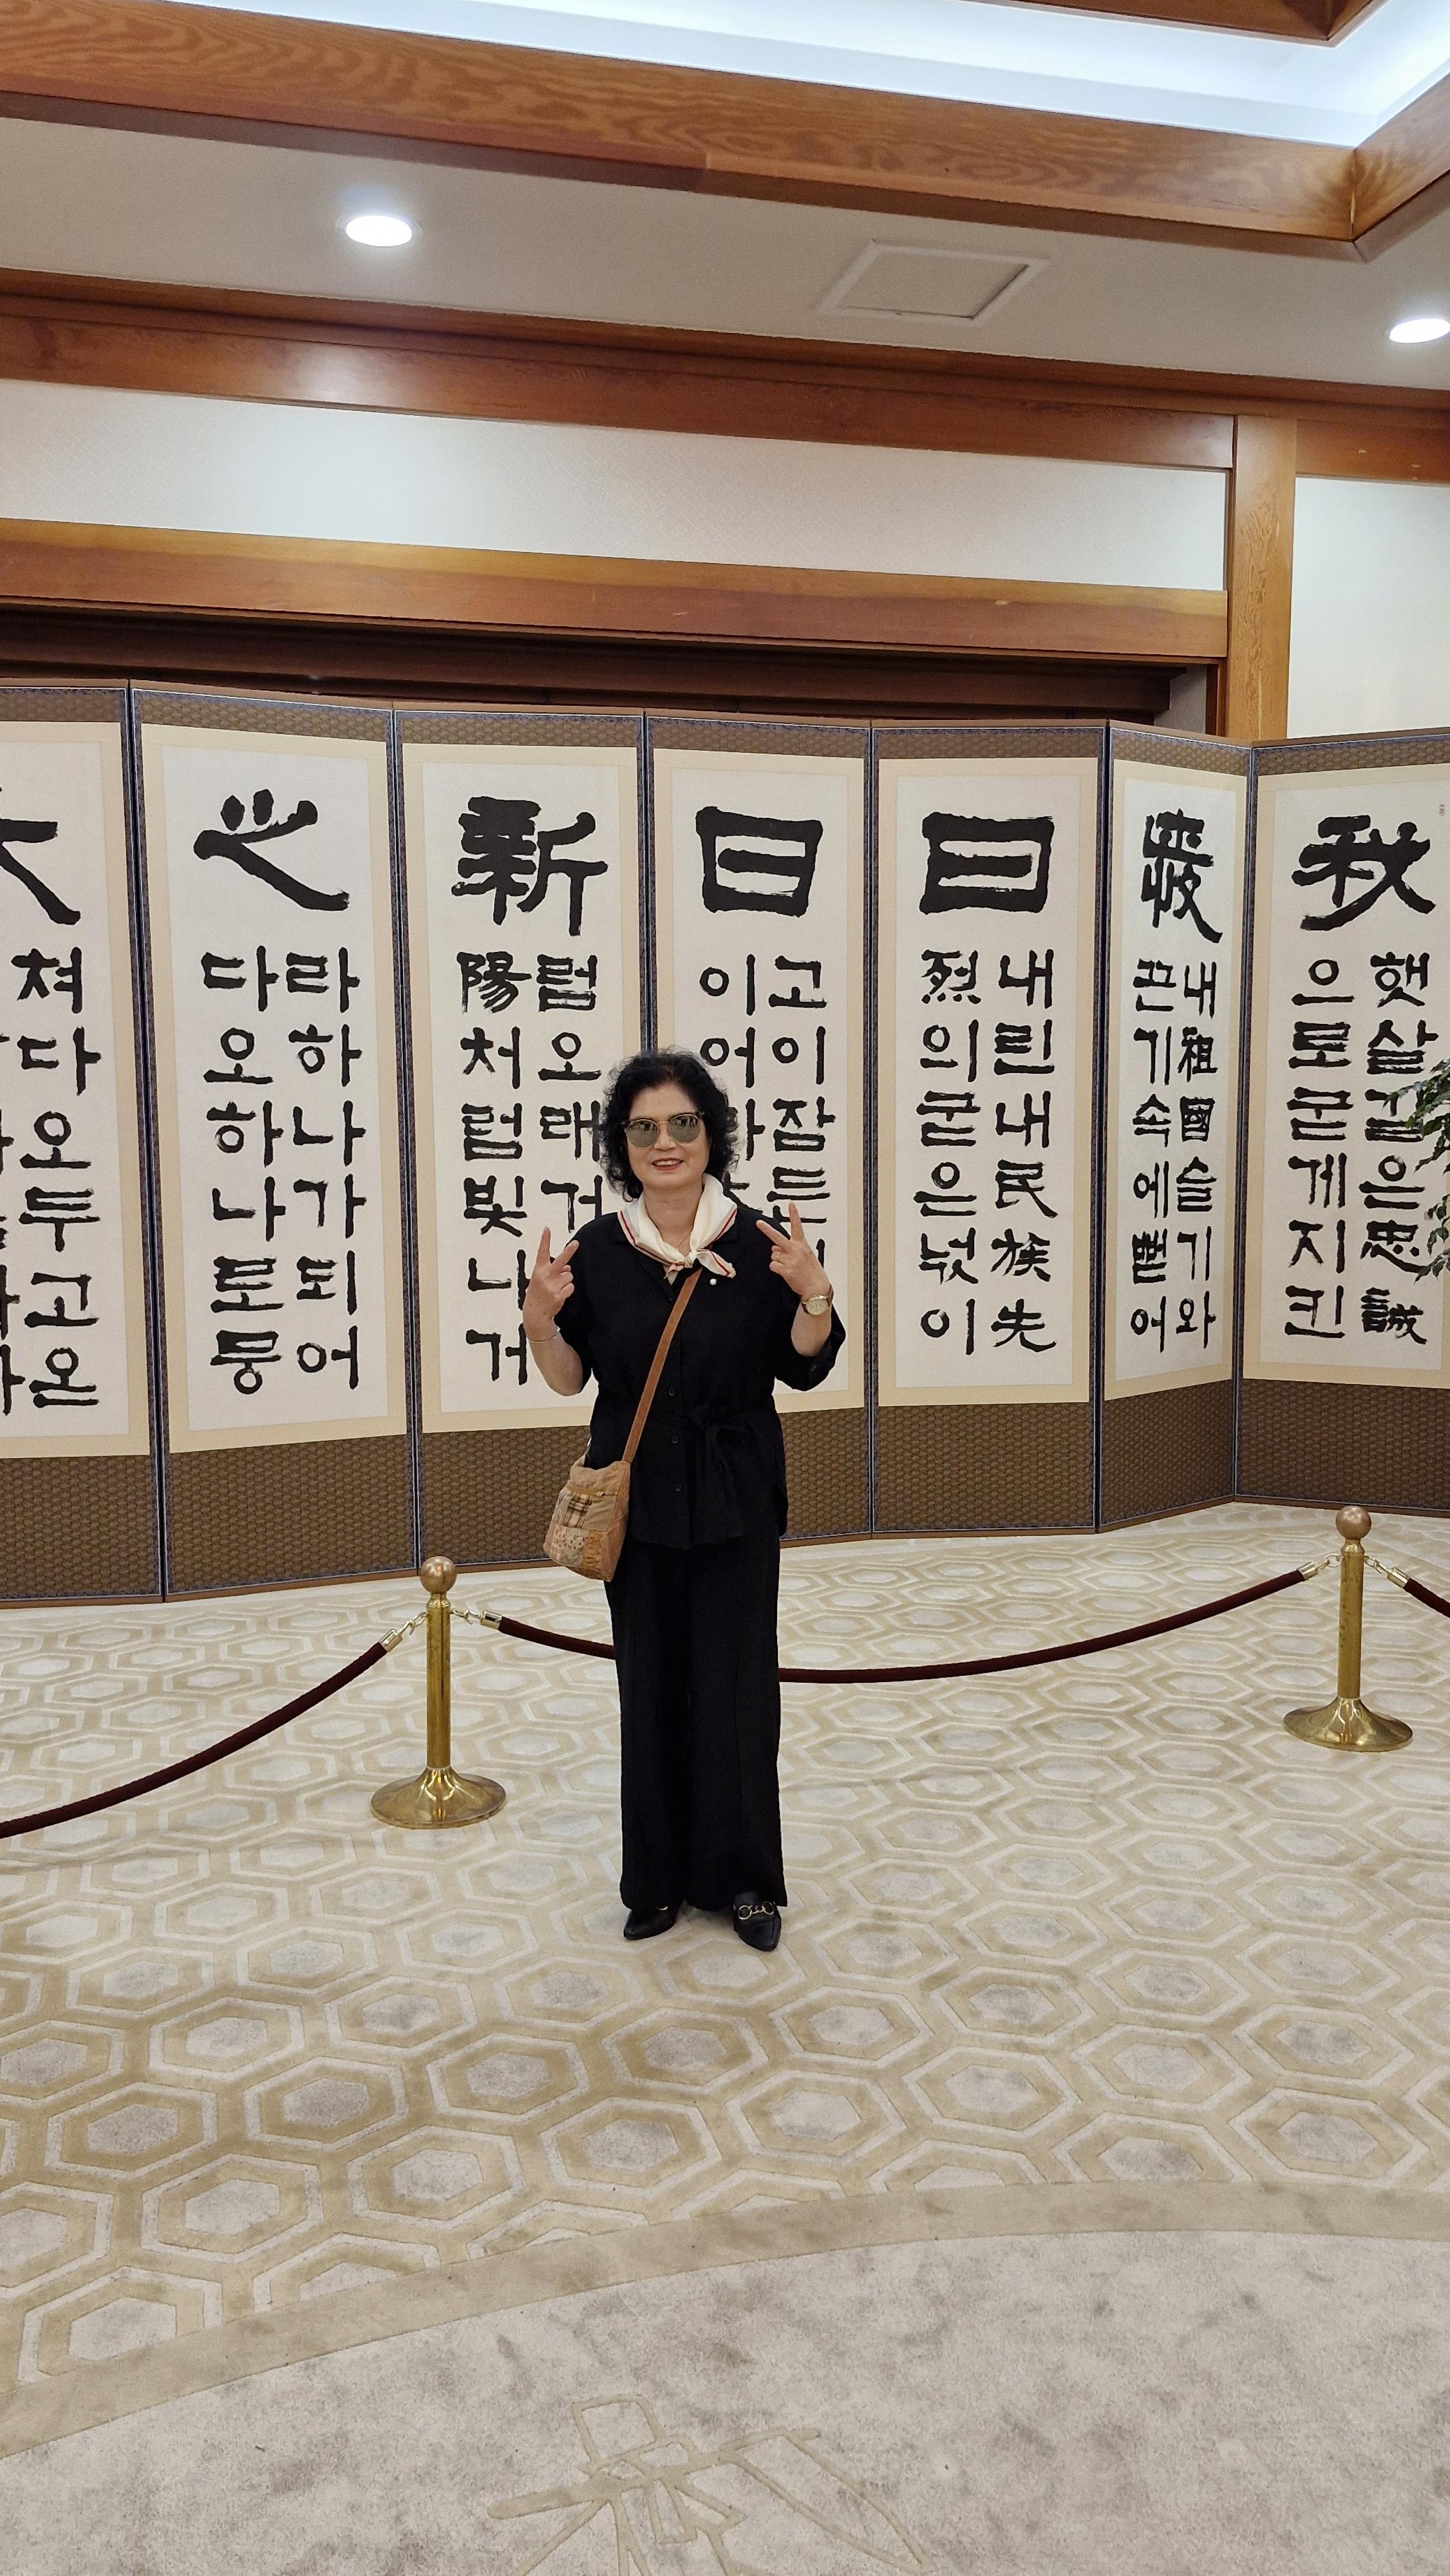 秋
햇살같은忠誠
으로굳게지킨
내祖國슬기와
끈기속에뻗어
曰
내린내民族先
烈의굳은넋이
日
고이잠든
이어
新
럼오래거
陽처럼빛나거
之
라하나가되어
다오하나로뭉
쳐다오두고온